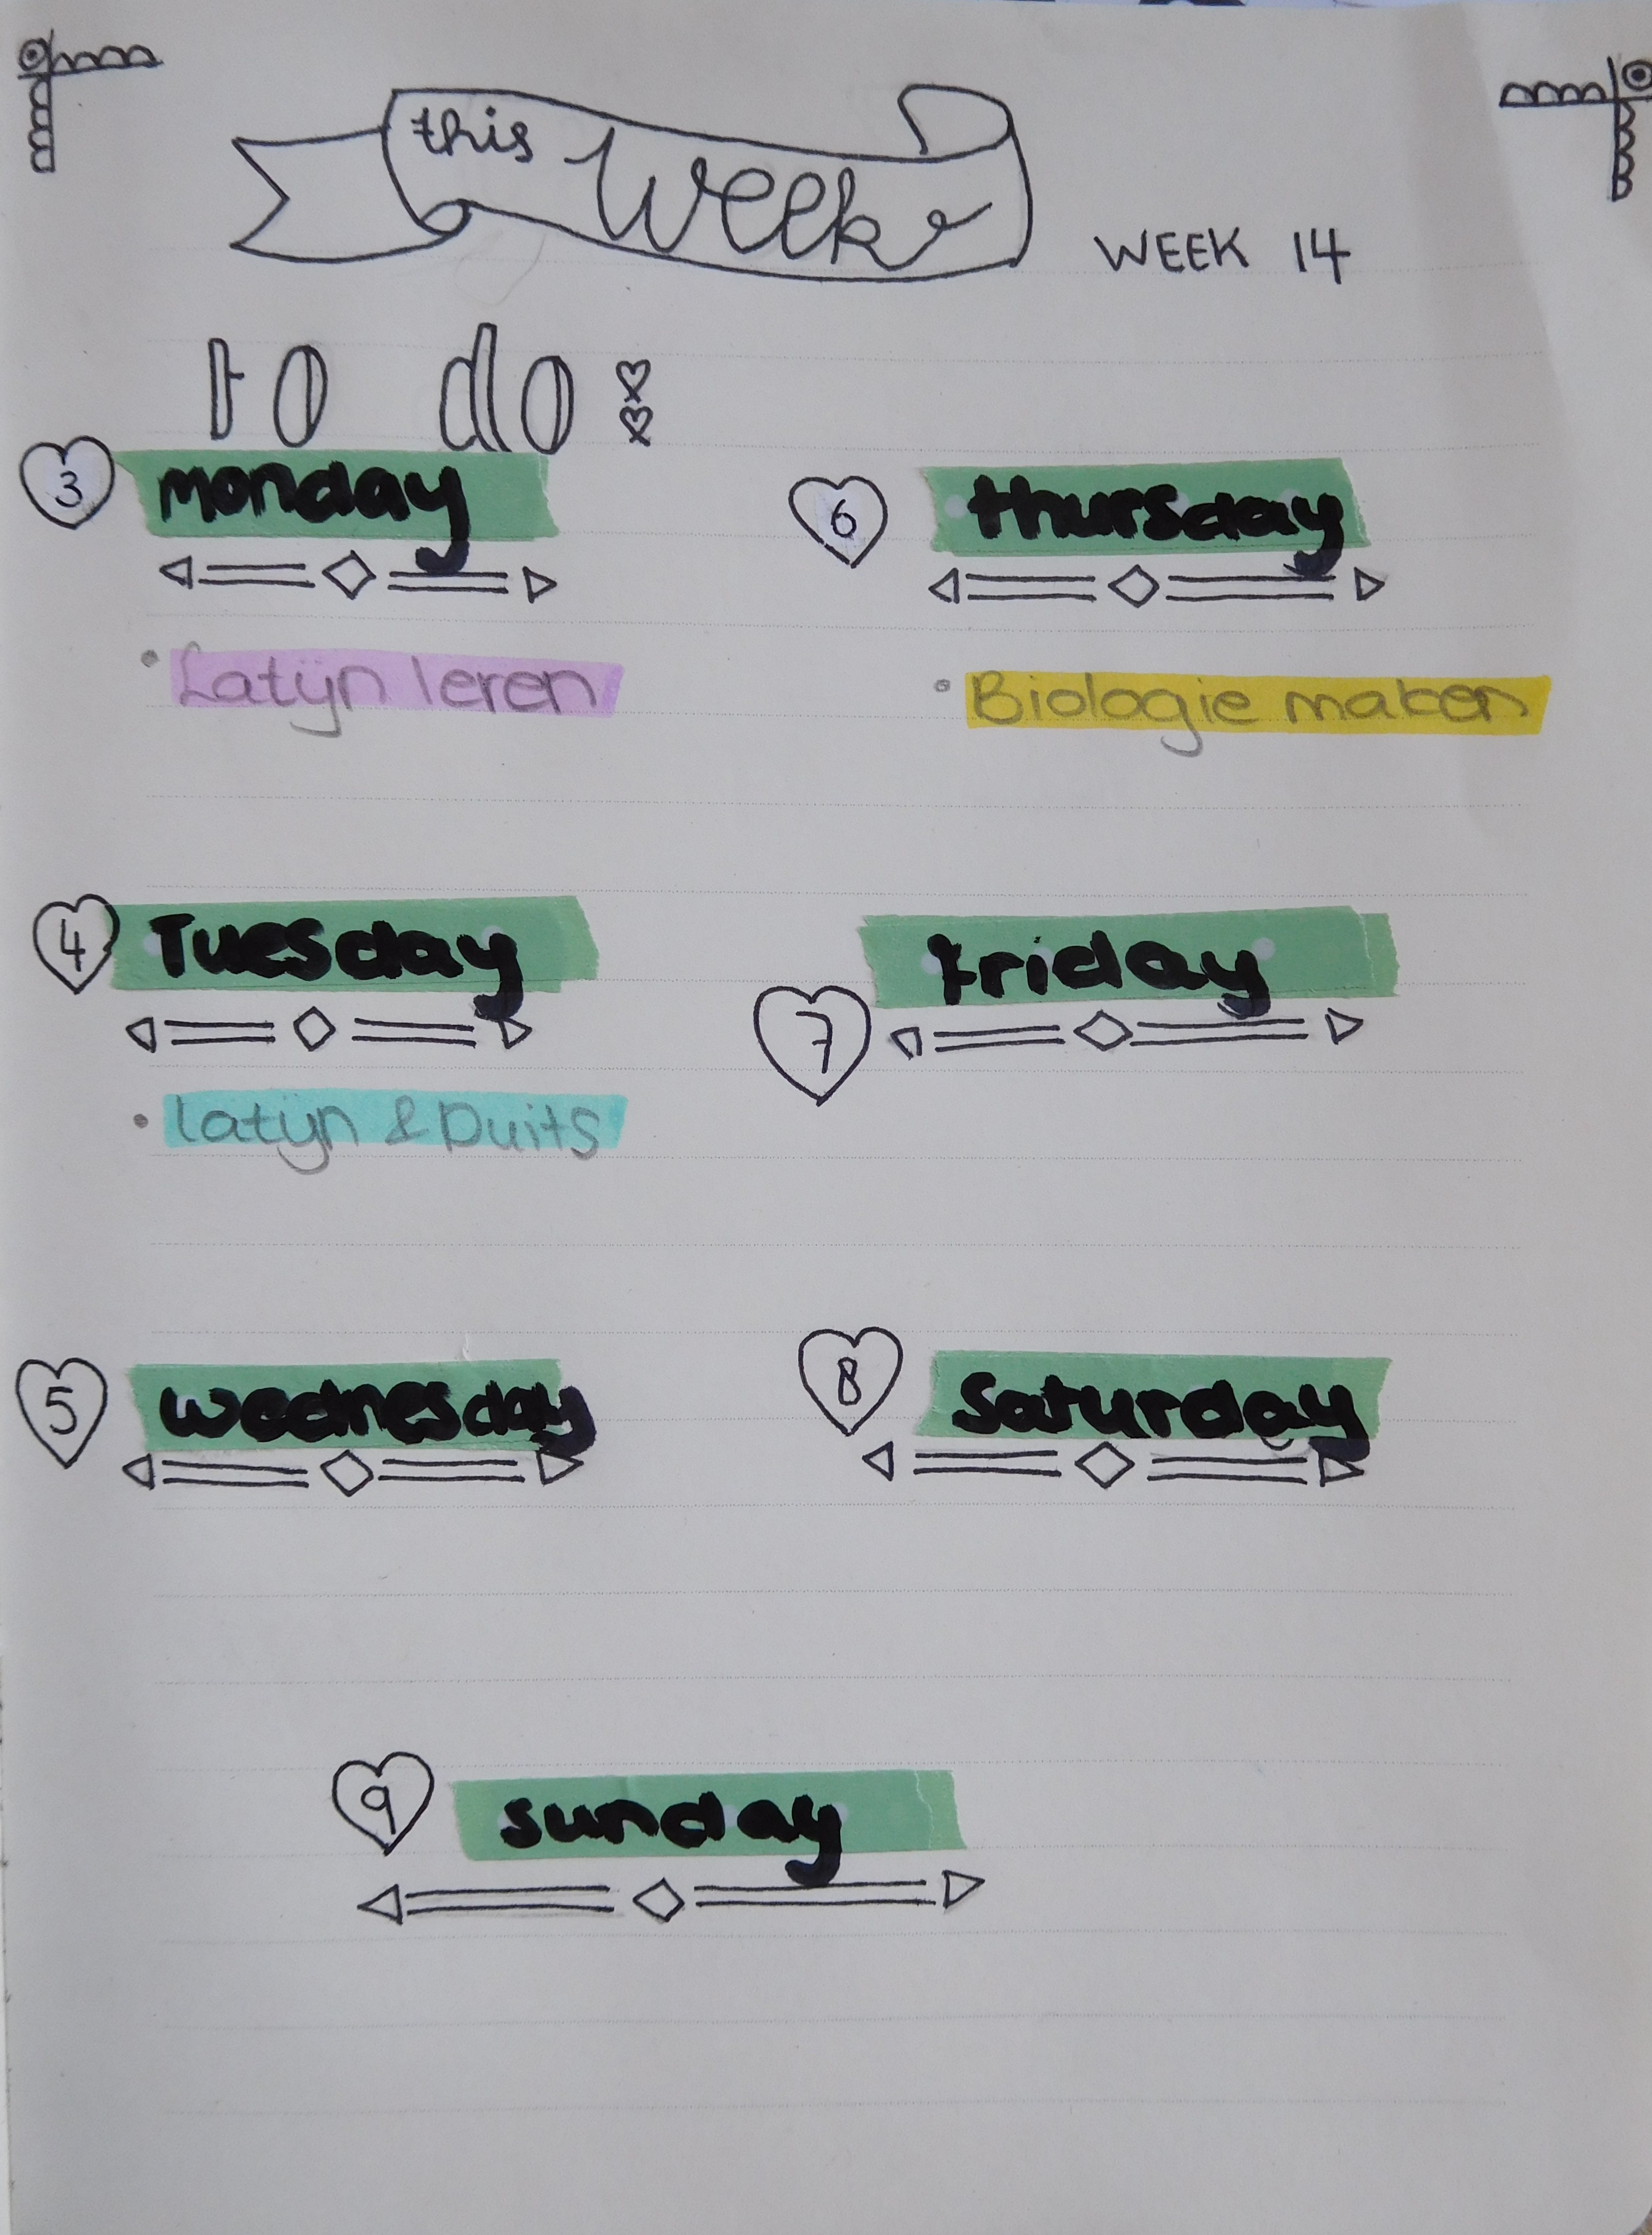 this week
WEEK 14
to do:
3 monday
Latijn leren
4 Tuesday
Latijn & Duits
5 wednesday
6 thursday
Biologie maken
7 friday
8 Saturday
9 sunday